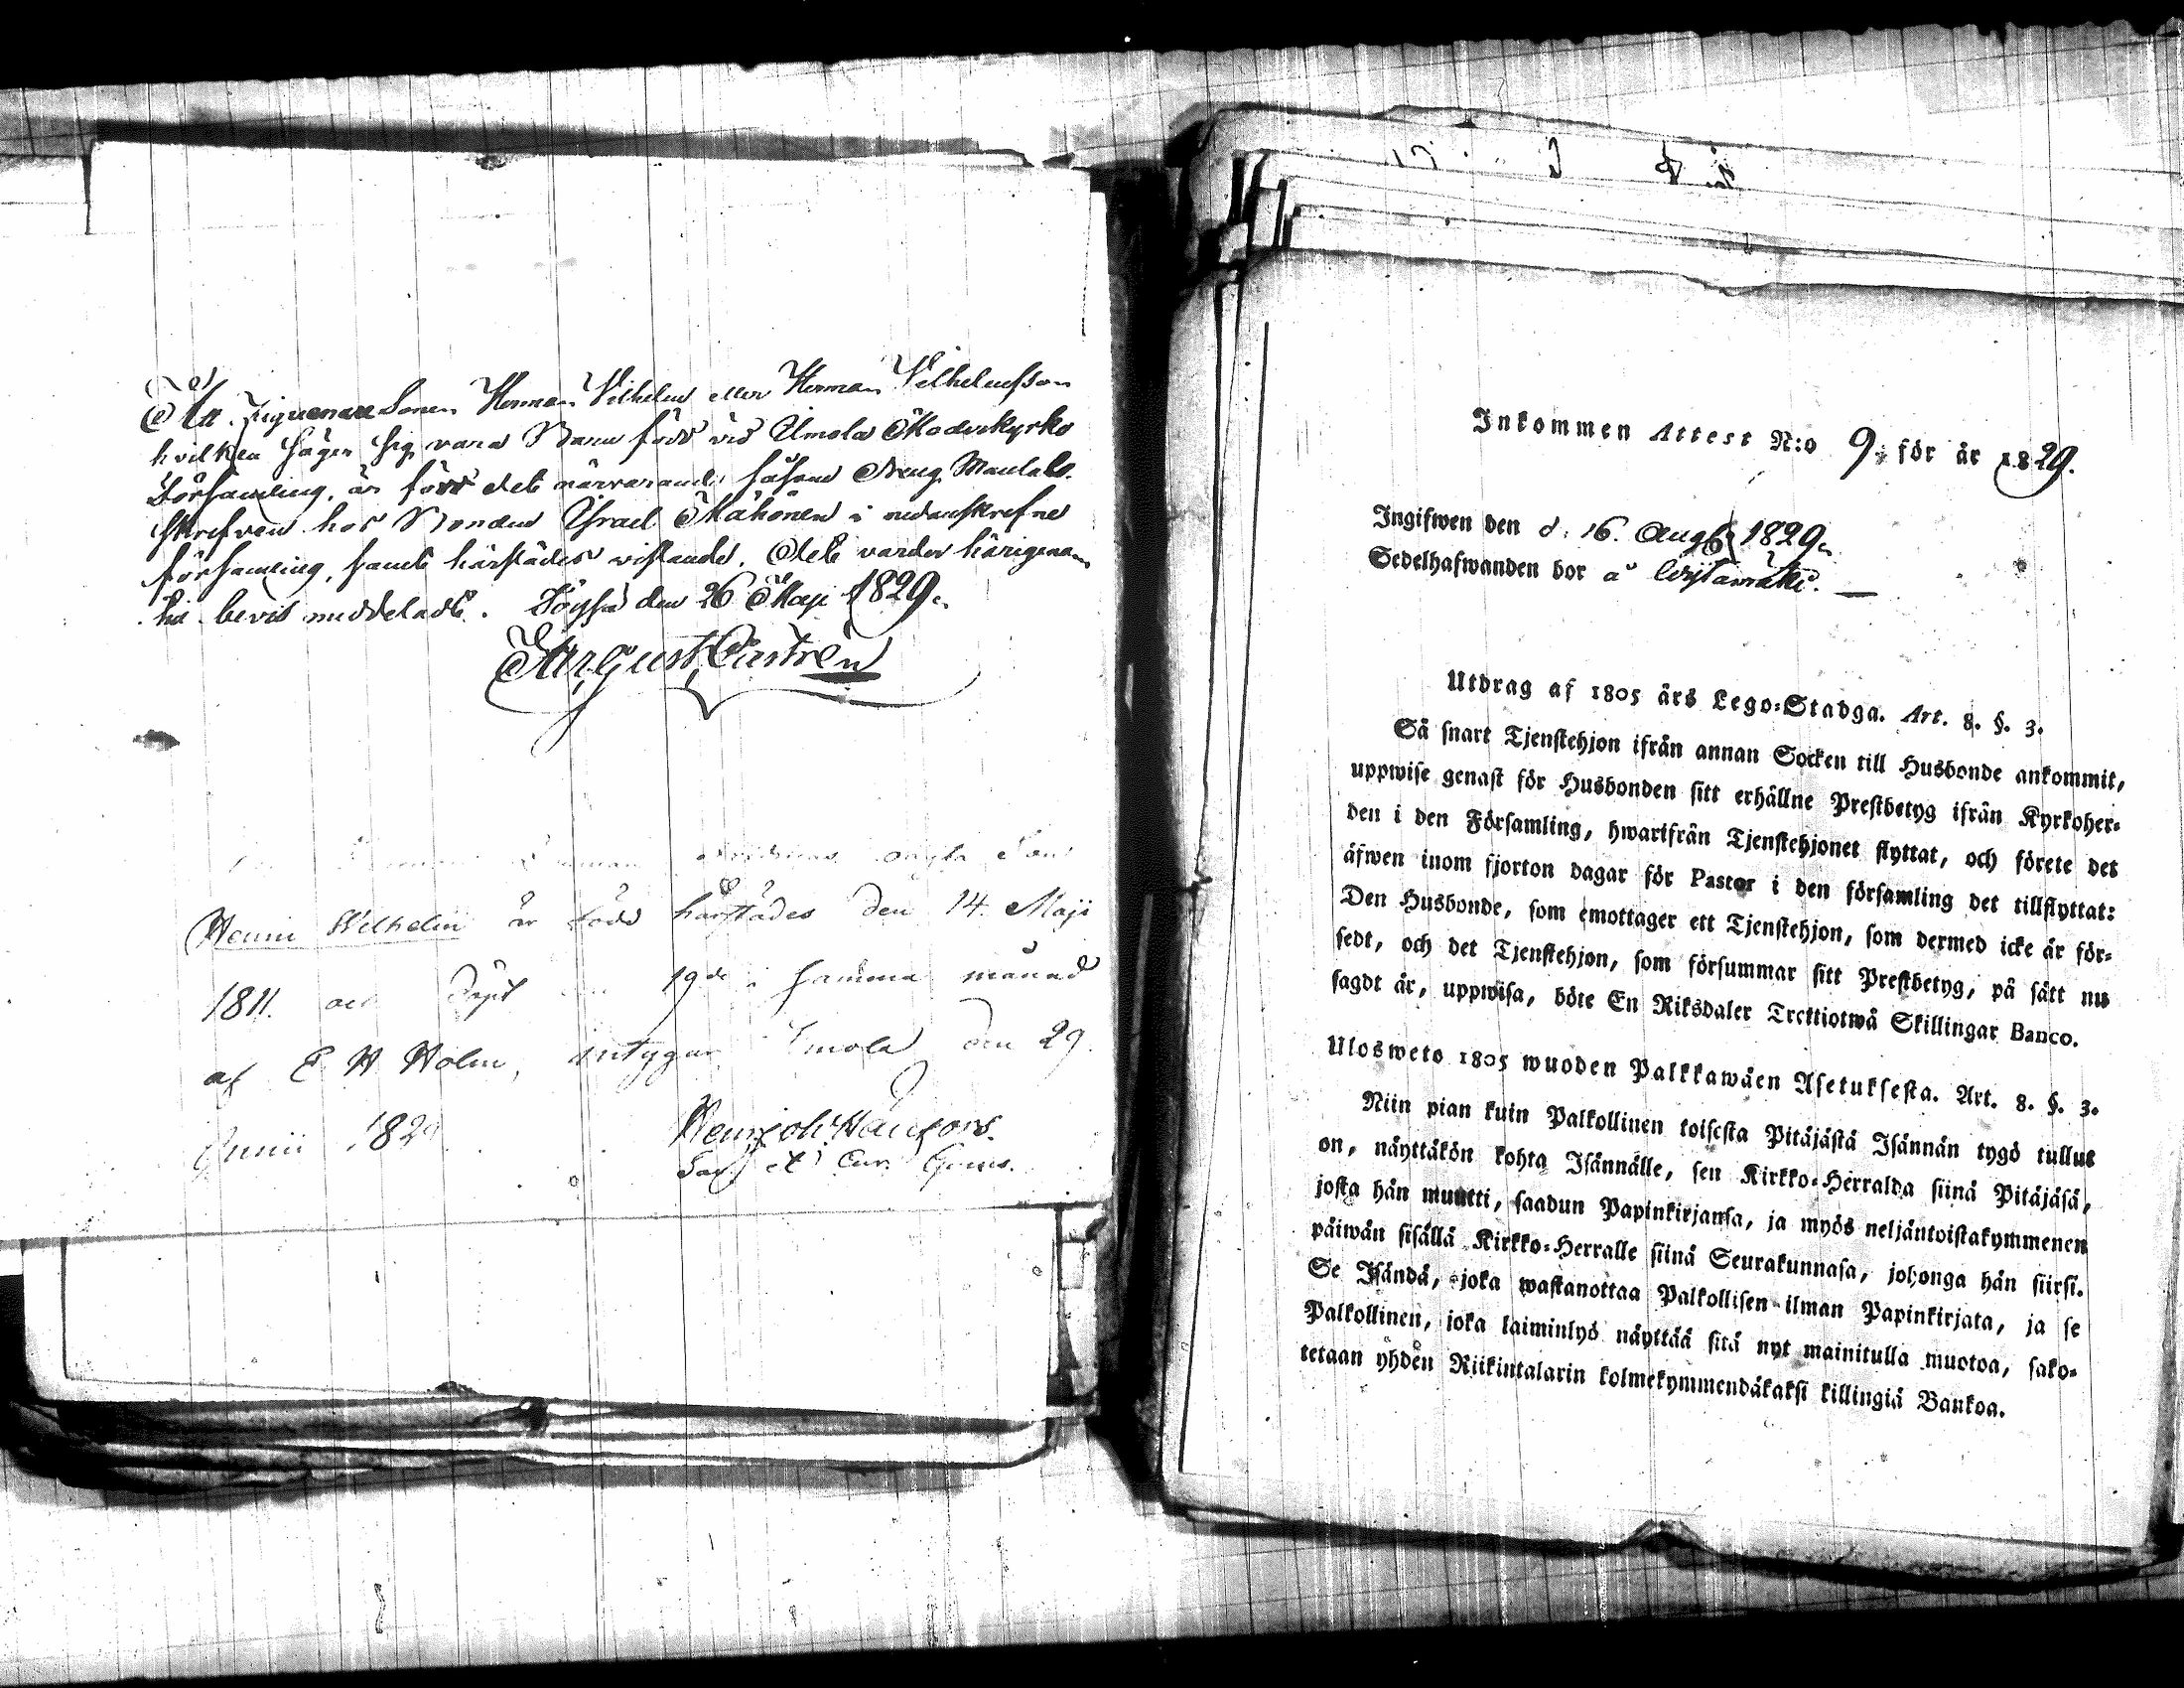 Att Ziguenare Sonen Herman Vilhelm eller Herman Vilhelmsson
hvilken säger sig vara Barn född vid Ilmola Moderkyrko
Församling, är förr det närvarande såsom Dreng Mantals-
skrefven hos Bonden Israel Mähönen i nedanskrefne
församling, samt härstädes vistande. Det varder härigenom
till bevis meddeladt. Töysä den 26 Maji 1829.
August Castrén
Son
Henric Wilhelm är född härstädes den 14. Maji
1811. och döpt 19de i samma månad
af E H Holm, intygar Ilmola den 29.
Junii 182
Sac. et Cur.
Inkommen Attest N:o 9. för år 1829.
Ingifwen den d. 16. Aug. 1829.
Sedelhafwanden bor å
Utdrag af 1805 års Lego-Stadga. Art. 8. §. 3.
Så snart Tjenstehjon ifrån annan Socken till Husbonde ankommit,
uppwise genast för Husbonden sitt erhållne Prestbetyg ifrån Kyrkoher-
den i den Församling, hwarifrån Tjenstehjonet flyttat, och förete det
äfwen inom fjorton dagar för Pastor i den församling det tillflyttat:
Den Husbonde, som emottager ett Tjenstehjon, som dermed icke är för-
sedt, och det Tjenstehjon, som försummar sitt Prestbetyg, på sätt nu
sagdt är, uppwisa, böte En Riksdaler Trettiotwå Skillingar Banco.
Ulosweto 1805 wuoden Palkkawäen Asetuksesta. Art. 8. §. 3.
Niin pian kuin Palkollinen toisesta Pitäjästä Isännän tygö tullut
on, näyttäkön kohta Isännälle, sen Kirkko-Herralda siinä Pitäjäsä,
josta hän muutti, saadun Papinkirjansa, ja myös neljäntoistakymmenen
päiwän sisällä Kirkko-Herralle siinä Seurakunnasa, johonga hän siirsi.
Se Isändä, joka wastanottaa Palkollisen ilman Papinkirjata, ja se
Palkollinen, joka laiminlyö näyttää sitä nyt mainitulla muotoa, sako-
tetaan yhden Riikintalarin kolmekymmendäkaksi killingiä Bankoa.